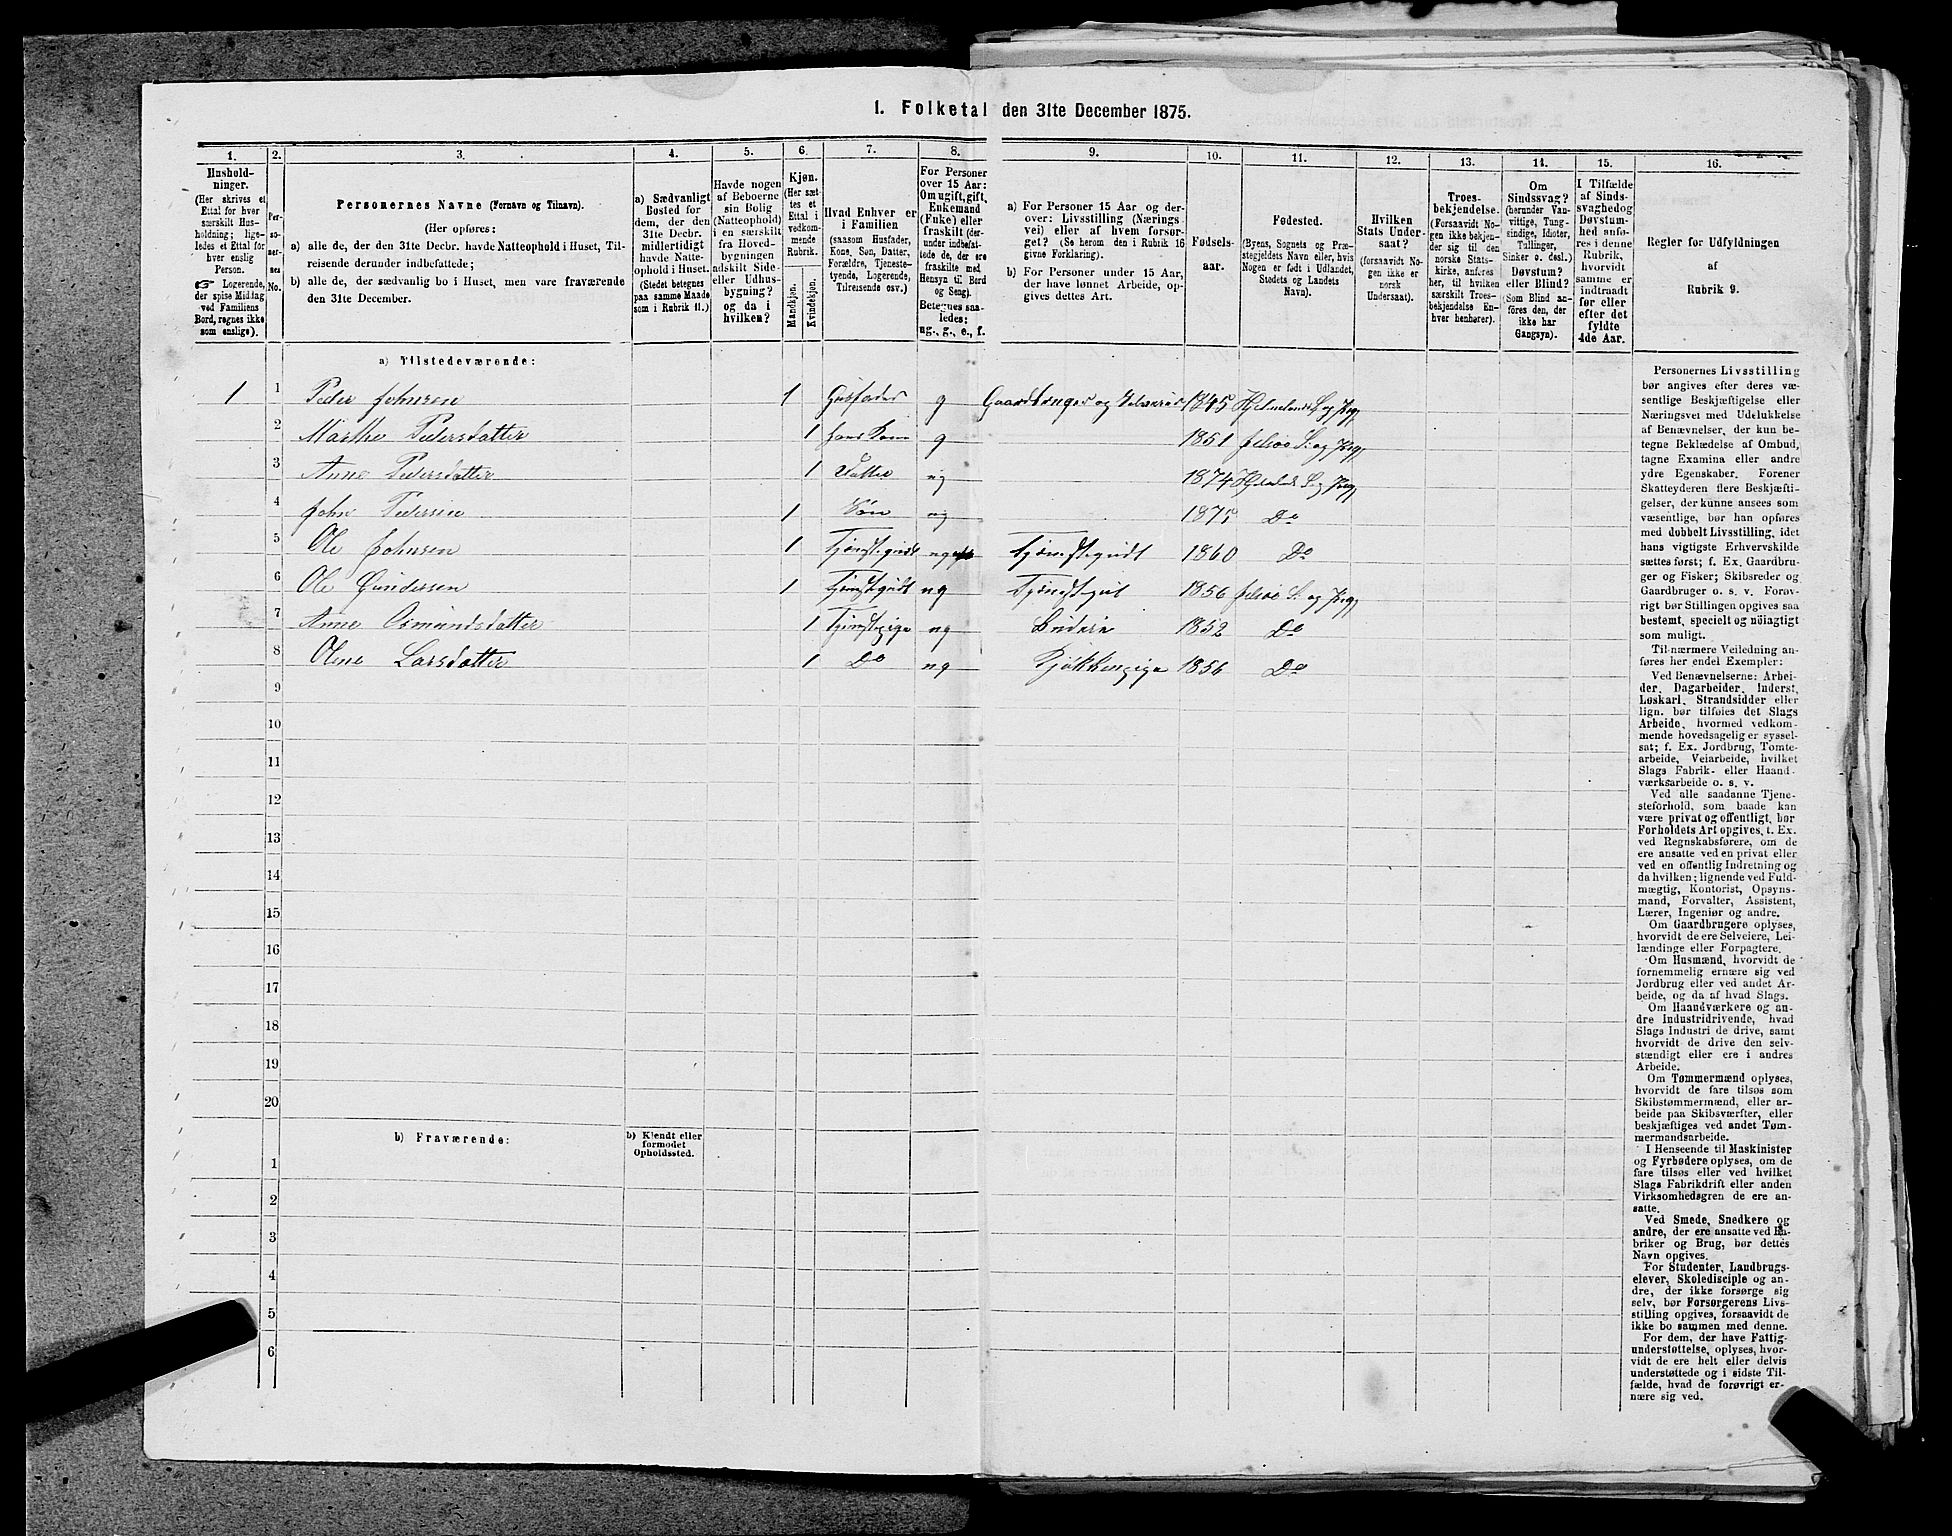 1. Folketal den 31te December 1875.
1. 2. 3. 4. 5. 6. 7. 8. 9. 10. 11. 12. 13. 14. 15. 16.
Hushold-
ninger.
(Her skrives et
Ettal for hver
særskilt Hus-
holdning; lige-
ledes et Ettal for
hver enslig
Person.
☞ Logerende,
der spise Middag
ved Familiens
Bord, regnes ikke
som enslige).
Per-
so-
ner-
nes
No.
Personernes Navne (Fornavn og Tilnavn).
(Her opføres:
a) alle de, der den 31te Decbr. havde Natteophold i Huset, Til-
reisende derunder indbefattede;
b) alle de, der sædvanlig bo i Huset, men vare fraværende
den 31te December.
a) Sædvanligt
Bosted for
dem, der den
31te Decbr.
midlertidigt
havde Natte-
ophold i Huset.
(Stedet betegnes
paa samme Maade
som i Rubrik 11.)
Havde nogen
af Beboerne
sin Bolig
(Natteophold)
i en særskilt
fra Hoved-
bygningen
adskilt Side-
eller Udhus-
bygning?
og da i
hvilken?
Kjøn.
(Her sæt-
tes et
Ettal i
vedkom-
mende
Rubrik.
Mandkjøn.
Kvindekjøn.
Hvad Enhver er
i Familien
(saasom Husfader,
Kone, Søn, Datter,
Forældre, Tjeneste-
tyende, Logerende,
Tilreisende osv.)
For Personer
over 15 Aar:
Om ugift, gift,
Enkemand
(Enke) eller
fraskilt (der-
under indbefat-
tede de, der ere
fraskilte med
Hensyn til Bord
og Seng).
Betegnes saa-
ledes:
ug., g., e., f.
a) For Personer 15 Aar og der-
over: Livsstilling (Nærings
vei) eller af hvem forsør-
get? (Se herom den i Rubrik 16
givne Forklaring).
b) For Personer under 15 Aar,
der have lønnet Arbeide, op-
gives dettes Art.
Fødsels-
aar.
Fødested.
(Byens, Sognets og Præ-
stegjeldets Navn eller, hvis
Nogen er født i Udlandet,
Stedets og Landets
Navn).
Hvilken
Stats Under-
saat?
(forsaavidt No-
gen ikke er
norsk
Undersaat).
Troes-
bekjendelse.
(Forsaavidt No-
gen ikke bekjen-
der sig til den
norske Stats-
kirke, anføres
her, til hvilken
særskilt Troes-
bekjendelse En-
hver henhører).
Om
Sindssvag?
(herunder Van-
vittige, Tung-
sindige, Idioter,
Tullinger,
Sinker o. desl.)
Døvstum?
eller Blind?
(Som Blind an-
føres den, der
ikke har
Gangsyn).
I Tilfælde
af Sinds-
svaghed og
Døvstum-
hed anfø-
res i denne
Rubrik,
hvorvidt
samme er
indtraadt
før eller
efter det
fyldte
4de Aar.
Regler for Udfyldningen
af
Rubrik 9.
a) Tilstedeværende:
1 1 Peder Johnsen 1 Husfader g Gaardbruger og Selveier 1845 Hjelmelands S. og Prg
2 Marthe Pedersdatter 1 hans Kone g 1851 Jelsøe S. og Prg
3 Anne Pedersdatter 1 Datter ug 1874 S. og Prg
4 John Pedersen 1 Søn ug 1875 Do
5 Ole Johnsen 1 Tjenstegudt ug Tjenstegudt 1860 Do
6 Ole Gundersen 1 Tjenstegudt ug Tjenestegut 1856 Jelsøe S. og Prg
7 Anne Osmundsdatter 1 Tjenstepige ug Budeie 1852 Do
8 Olene Larsdatter 1 Do ug Kjøkkenpige 1856 Do
9
10
11
12
13
14
15
16
17
18
19
20
b) Fraværende: b) Kjendt eller
formodet
Opholdssted.
1
2
3
4
5
6
Personernes Livsstilling
bør angives efter deres væ-
sentlige Beskjæftigelse eller
Næringsvei med Udelukkelse
af Benævnelser, der kun be-
tegne Beklædelse af Ombud,
tagne Examina eller andre
ydre Egenskaber. Forener
Skatteyderen flere Beskjæfti-
gelser, der kunne ansees som
væsentlige, bør han opføres
med dobbelt Livsstilling, idet
hans vigtigste Erhvervskilde
sættes først; f. Ex. Gaardbru-
ger og Fisker; Skibsreder og
Gaardbruger o. s. v. Forøv-
rigt bør Stillingen opgives saa
bestemt, specielt og nøiagtigt
som muligt.
Til nærmere Veiledning an-
føres her endel Exempler:
Ved Benævnelserne: Arbei-
der, Dagarbeider, Inderst,
Løskarl, Strandsidder eller
lign. bør tilføies det Slags
Arbeide, hvormed vedkom-
mende hovedsagelig er syssel-
sat; f. Ex. Jordbrug, Tomte-
arbeide, Veiarbeide, hvilket
Slags Fabrik- eller Haand-
værksarbeide o. s. v.
Ved alle saadanne Tjene-
steforhold, som baade kan
være privat og offentligt, bør
Forholdets Art opgives, t. Ex.
ved Regnskabsførere, om de
ere ansatte ved en privat eller
ved en offentlig Indretning og
da hvilken; lignende ved Fuld-
mægtig, Kontorist, Opsyns-
mand, Forvalter, Assistent,
Lærer, Ingeniør og andre.
Om Gaardbrugere oplyses,
hvorvidt de ere Selveiere, Lei-
lændinge eller Forpagtere.
Om Husmænd, hvorvidt de
fornemmelig ernære sig ved
Jordbrug eller ved andet Ar-
beide, og da af hvad Slags.
Om Haandværkere og an-
dre Industridrivende, hvad
Slags Industri de drive, samt
hvorvidt de drive den selv-
stændigt eller ere i andres
Arbeide.
Om Tømmermænd oplyses,
hvorvidt de fare tilsøs som
Skibstømmermænd, eller ar-
beide paa Skibsværfter, eller
beskjæftiges ved andet Tøm-
mermandsarbeide.
I Henseende til Maskinister
og Fyrbødere oplyses, om de
fare tilsøs eller ved hvilket
Slags Fabrikdrift eller anden
Virksomhedsgren de ere an-
satte.
Ved Smede, Snedkere og
andre, der ere ansatte ved Fa-
briker og Brug, bør dettes
Navn opgives.
For Studenter, Landbrugs-
elever, Skoledisciple og an-
dre, der ikke forsørge sig
selv, bør Forsørgerens Livs-
stilling opgives, forsaavidt de
ikke bo sammen med denne.
For dem, der have Fattig-
understøttelse, oplyses, hvor-
vidt de ere helt eller delvis
understøttede og i sidste Til-
fælde, hvad de forøvrigt er-
nære sig ved.